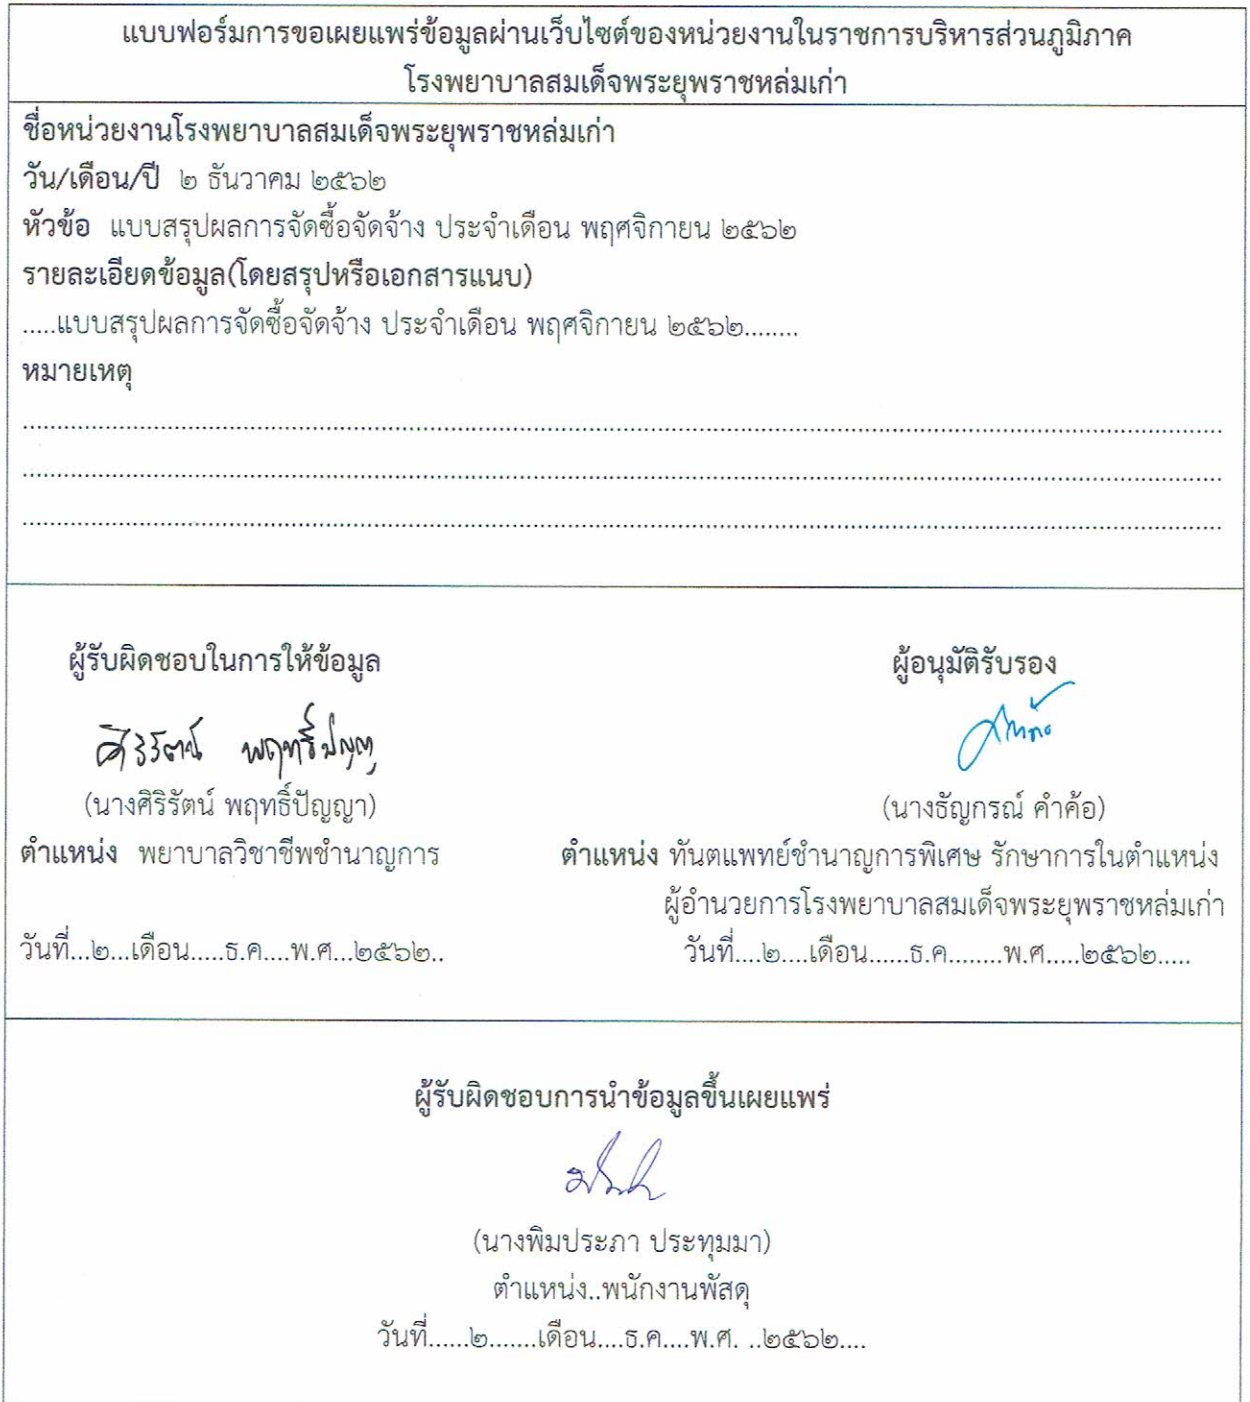 แบบฟอร์มการขอเผยแพร่ข้อมูลผ่านเว็บไซต์ของหน่วยงานในราชการบริหารส่วนภูมิภาค
โรงพยาบาลสมเด็จพระยุพราชหล่มเก่า
ชื่อหน่วยงานโรงพยาบาลสมเด็จพระยุพราชหล่มเก่า
วัน/เดือน/ปี ๒ ธันวาคม ๒๕๖๒
หัวข้อ แบบสรุปผลการจัดซื้อจัดจ้าง ประจำเดือน พฤศจิกายน ๒๕๖๒
รายละเอียดข้อมูล(โดยสรุปหรือเอกสารแนบ)
.....แบบสรุปผลการจัดซื้อจัดจ้าง ประจำเดือน พฤศจิกายน ๒๕๖๒........
หมายเหตุ
ผู้รับผิดชอบในการให้ข้อมูล ผู้อนุมัติรับรอง
ศิริรัตน์ พฤทธิ์ปัญญา
(นางศิริรัตน์ พฤทธิ์ปัญญา) (นางธัญกรณ์ คำค้อ)
ตำแหน่ง พยาบาลวิชาชีพชำนาญการ ตำแหน่ง ทันตแพทย์ชำนาญการพิเศษ รักษาการในตำแหน่ง
ผู้อำนวยการโรงพยาบาลสมเด็จพระยุพราชหล่มเก่า
วันที่...๒...เดือน.....ธ.ค....พ.ศ...๒๕๖๒.. วันที่....๒....เดือน......ธ.ค........พ.ศ.....๒๕๖๒.....
ผู้รับผิดชอบการนำข้อมูลขึ้นเผยแพร่
(นางพิมประภา ประทุมมา)
ตำแหน่ง..พนักงานพัสดุ
วันที่......๒.......เดือน....ธ.ค....พ.ศ. ..๒๕๖๒....